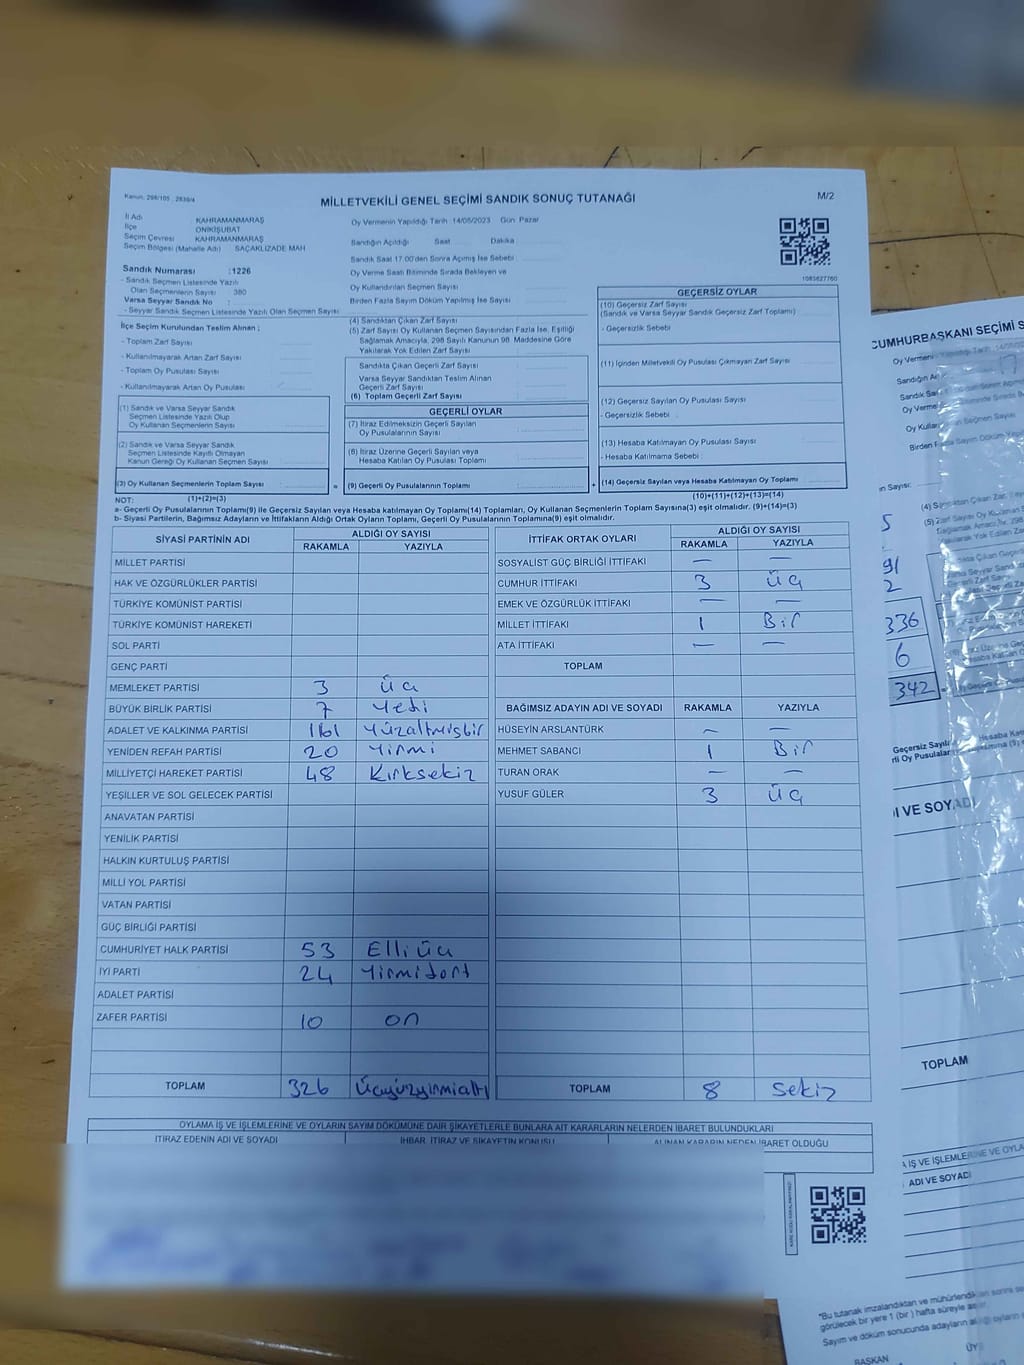 Kanun, 298/105 , 2839/a
MİLLETVEKİLİ GENEL SEÇİMİ SANDIK SONUÇ TUTANAĞI
M/2
İl Adı : KAHRAMANMARAŞ
İlçe : ONİKİŞUBAT
Seçim Çevresi : KAHRAMANMARAŞ
Seçim Bölgesi (Mahalle Adı) : SAÇAKLIZADE MAH
Sandık Numarası : 1226
- Sandık Seçmen Listesinde Yazılı
Olan Seçmenlerin Sayısı : 380
Varsa Seyyar Sandık No :
- Seyyar Seçmen Listesinde Yazılı Olan Seçmen Sayısı
Oy Vermenin Yapıldığı Tarih 14/05/2023 Gün Pazar
Sandığın Açıldığı Saat Dakika
Sandık Saat 17.00'den Sonra Açılmış İse Sebebi :
Oy Verme Saati Bitiminde Sırada Bekleyen ve
Oy Kullandırılan Seçmen Sayısı
Birden Fazla Sayım Döküm Yapılmış İse Sayısı
1083627760
İlçe Seçim Kurulundan Teslim Alınan ;
- Toplam Zarf Sayısı
- Kullanılmayarak Artan Zarf Sayısı
- Toplam Oy Pusulası
- Kullanılmayarak Artan Oy Pusulası
(1) Sandık ve Varsa Seyyar Sandık
Seçmen Listesinde Yazılı Olup
Oy Kullanan Seçmenlerin Sayısı
(2) Sandık ve Varsa Seyyar Sandık
Seçmen Listesinde Kayıtlı Olmayan
Kanun Gereği Oy Kullanan Seçmen Sayısı
(3) Oy Kullanan Seçmenlerin Toplam Sayısı
(4) Sandıktan Çıkan Zarf Sayısı
(5) Zarf Sayısı Oy Kullanan Seçmen Sayısından Fazla İse, Eşitliği
Sağlamak Amacıyla, 298 Sayılı Kanunun 98. Maddesine Göre
Yakılarak Yok Edilen Zarf Sayısı
Sandıkta Çıkan Geçerli Zarf Sayısı
Varsa Seyyar Sandıktan Teslim Alınan
Geçerli Zarf Sayısı
(6) Toplam Geçerli Zarf Sayısı
GEÇERLİ OYLAR
(7) İtiraz Edilmeksizin Geçerli Sayılan
Oy Pusulalarının Sayısı
(8) İtiraz Üzerine Geçerli Sayılan veya
Hesaba Katılan Oy Pusulası Toplamı
= (9) Geçerli Oy Pusulalarının Toplamı
GEÇERSİZ OYLAR
(10) Geçersiz Zarf Sayısı
(Sandık ve Varsa Seyyar Sandık Geçersiz Zarf Toplamı)
- Geçersizlik Sebebi :
(11) İçinden Milletvekili Oy Pusulası Çıkmayan Zarf Sayısı
(12) Geçersiz Sayılan Oy Pusulası Sayısı
- Geçersizlik Sebebi :
(13) Hesaba Katılmayan Oy Pusulası Sayısı
- Hesaba Katılmama Sebebi :
+ (14) Geçersiz Sayılan veya Hesaba Katılmayan Oy Toplamı
NOT: (1)+(2)=(3)
(10)+(11)+(12)+(13)=(14)
a- Geçerli Oy Pusulalarının Toplamı(9) ile Geçersiz Sayılan veya Hesaba katılmayan Oy Toplamı(14) Toplamları, Oy Kullanan Seçmenlerin Toplam Sayısına(3) eşit olmalıdır. (9)+(14)=(3)
b- Siyasi Partilerin, Bağımsız Adayların ve İttifakların Aldığı Ortak Oyların Toplamı, Geçerli Oy Pusulalarının Toplamına(9) eşit olmalıdır.
SİYASİ PARTİNİN ADI ALDIĞI OY SAYISI
RAKAMLA YAZIYLA
MİLLET PARTİSİ
HAK VE ÖZGÜRLÜKLER PARTİSİ
TÜRKİYE KOMÜNİST PARTİSİ
TÜRKİYE KOMÜNİST HAREKETİ
SOL PARTİ
GENÇ PARTİ
MEMLEKET PARTİSİ 3 üç
BÜYÜK BİRLİK PARTİSİ 7 Yedi
ADALET VE KALKINMA PARTİSİ 161 Yüzaltmışbir
YENİDEN REFAH PARTİSİ 20 Yirmi
MİLLİYETÇİ HAREKET PARTİSİ 48 Kırksekiz
YEŞİLLER VE SOL GELECEK PARTİSİ
ANAVATAN PARTİSİ
YENİLİK PARTİSİ
HALKIN KURTULUŞ PARTİSİ
MİLLİ YOL PARTİSİ
VATAN PARTİSİ
GÜÇ BİRLİĞİ PARTİSİ
CUMHURİYET HALK PARTİSİ 53 Elliüç
İYİ PARTİ 24 Yirmidört
ADALET PARTİSİ
ZAFER PARTİSİ 10 on
TOPLAM 326 Üçyüzyirmialtı
İTTİFAK ORTAK OYLARI ALDIĞI OY SAYISI
RAKAMLA YAZIYLA
SOSYALİST GÜÇ BİRLİĞİ İTTİFAKI — —
CUMHUR İTTİFAKI 3 üç
EMEK VE ÖZGÜRLÜK İTTİFAKI — —
MİLLET İTTİFAKI 1 Bir
ATA İTTİFAKI — —
TOPLAM
BAĞIMSIZ ADAYIN ADI VE SOYADI RAKAMLA YAZIYLA
HÜSEYİN ARSLANTÜRK — —
MEHMET SABANCI 1 Bir
TURAN ORAK — —
YUSUF GÜLER 3 üç
TOPLAM 8 Sekiz
OYLAMA İŞ VE İŞLEMLERİNE VE OYLARIN SAYIM DÖKÜMÜNE DAİR ŞİKAYETLERLE BUNLARA AİT KARARLARIN NELERDEN İBARET BULUNDUKLARI
İTİRAZ EDENİN ADI VE SOYADI İHBAR, İTİRAZ VE ŞİKAYETİN KONUSU ALINAN KARARIN NEDEN İBARET OLDUĞU
CUMHURBAŞKANI SEÇİMİ S
Oy Vermeni
Sandığın
Oy Verme
Birden
n Sayısı:
5
91
2
336
6
342
(4)
(5)
Geçersiz Sayıla
I VE SOYADI
TOPLAM
A İŞ VE İŞLEMLERİNE VE OYLA
ADI VE SOYADI
*Bu tutanak imzalandıktan ve mühürlendik
görülecek bir yere 1 (bir ) hafta süreyle
Sayım ve döküm sonucunda adayların
BAŞKAN
ÜY